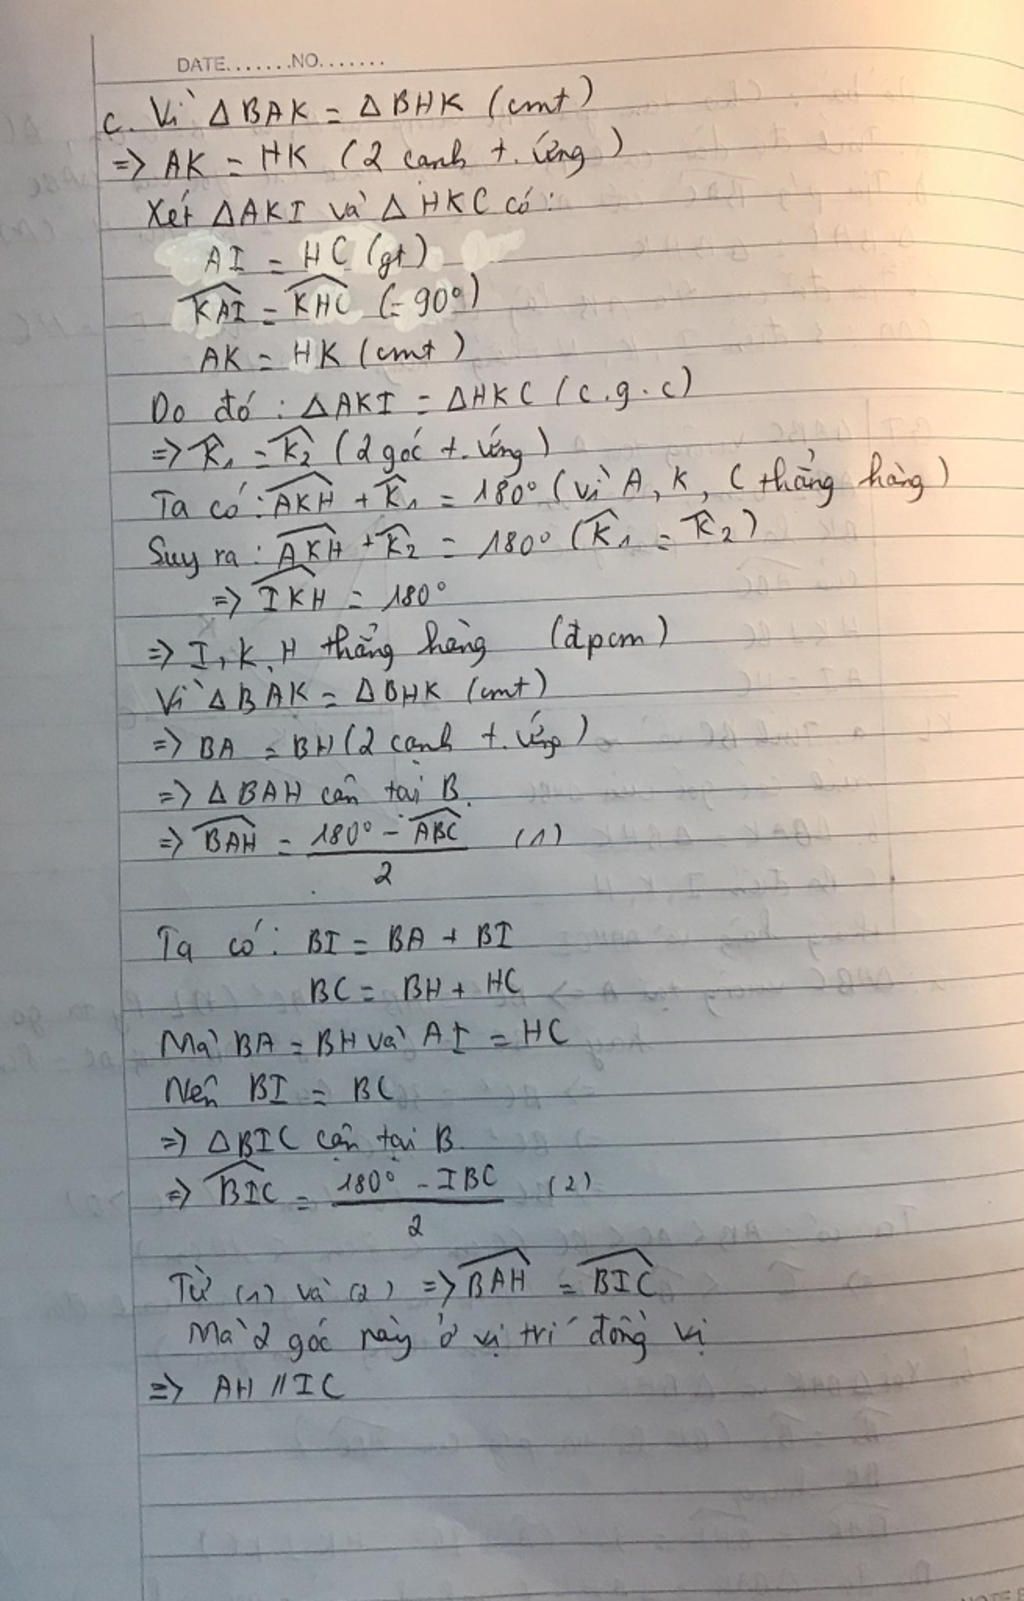 DATE.......NO.......
c. Vì △BAK = △BHK (cmt)
=> AK = HK (2 cạnh t. ứng)
Xét △AKI và △HKC có:
AI = HC (gt)
\widehat{KAI} = \widehat{KHC} (= 90°)
AK = HK (cmt)
Do đó : △AKI = △HKC (c.g.c)
=> \widehat{K}₁ = \widehat{K}₂ (2 góc t. ứng)
Ta có : \widehat{AKH} + \widehat{K}₁ = 180° (vì A, K, C thẳng hàng)
Suy ra : \widehat{AKH} + \widehat{K}₂ = 180° (\widehat{K}₁ = \widehat{K}₂)
=> \widehat{IKH} = 180°
=> I, K, H thẳng hàng (đpcm)
Vì △BAK = △BHK (cmt)
=> BA = BH (2 cạnh t. ứng)
=> △BAH cân tại B.
=> \widehat{BAH} = \frac{180° - \widehat{ABC}}{2} (1)
Ta có : BI = BA + BI
BC = BH + HC
Mà BA = BH và AI = HC
Nên BI = BC
=> △BIC cân tại B.
=> \widehat{BIC} = \frac{180° - IBC}{2} (2)
Từ (1) và (2) => \widehat{BAH} = \widehat{BIC}
Mà 2 góc này ở vị trí đồng vị
=> AH // IC